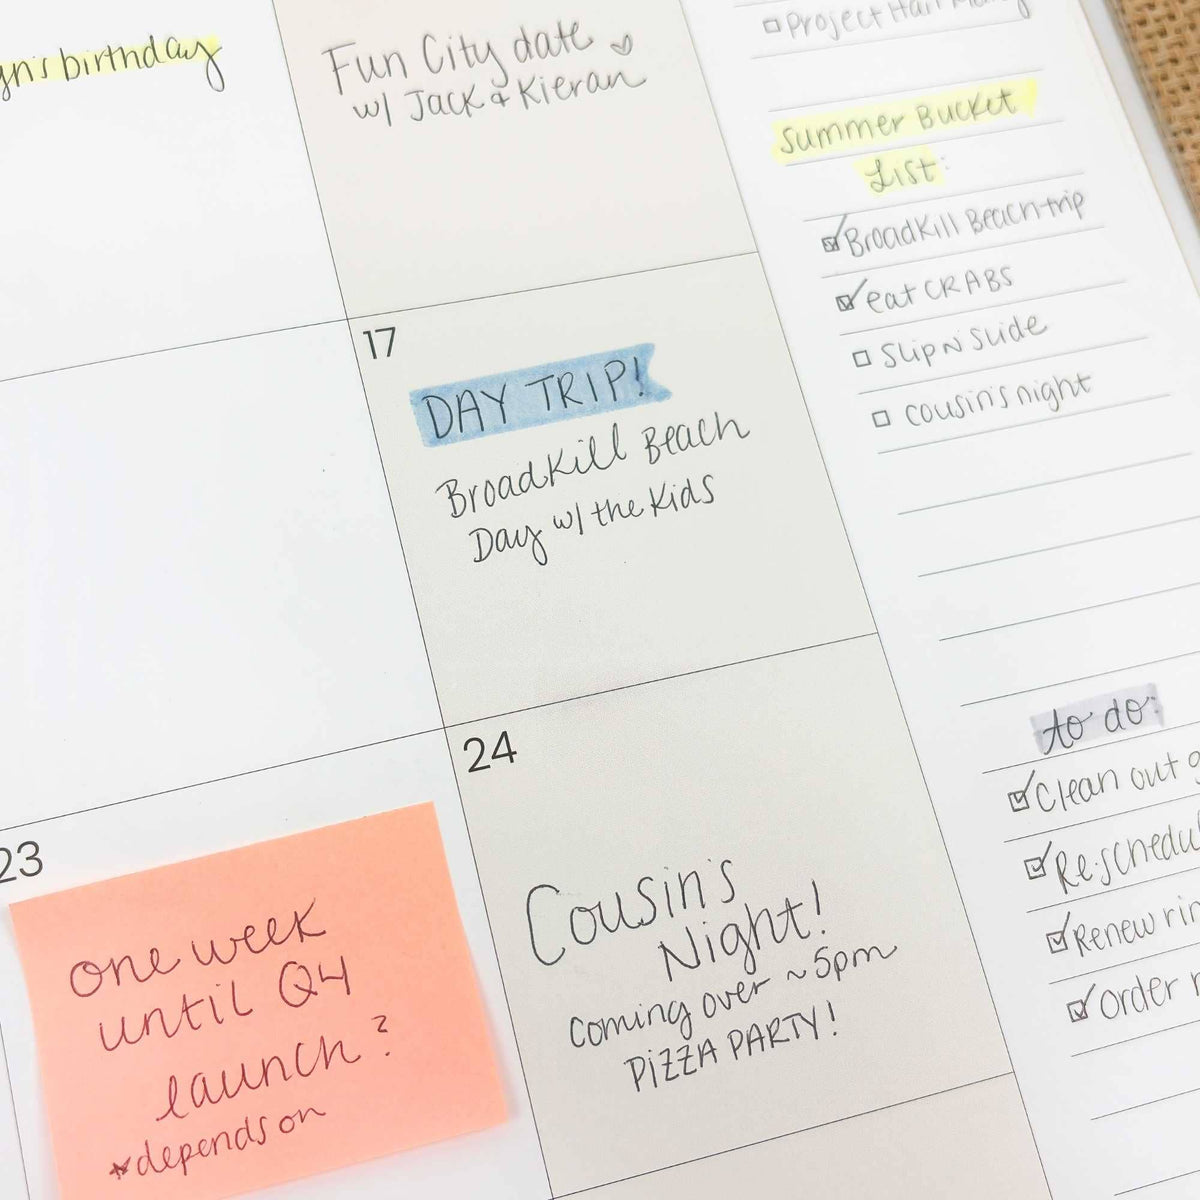 birthday
Fun City date
w/ Jack & Kieran
17
DAY TRIP!
BroadKill Beach
Day w/ the Kids
23
one week
until Q4
launch?
*depends on
24
Cousin's
Night!
coming over ~5pm
PIZZA PARTY!
Project Hail
Summer Bucket
List:
BroadKill Beach trip
eat CRABS
Slip N Slide
cousin's night
to do:
Clean out
Renew
Order